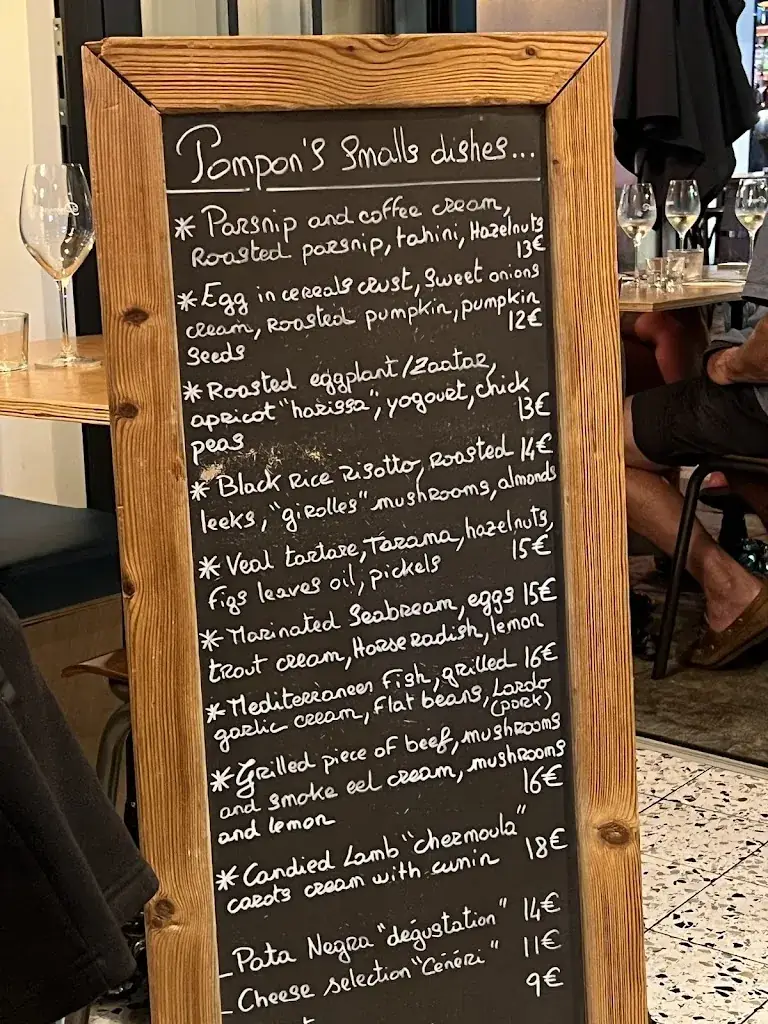 Pompon's Smalls dishes...
* Parsnip and coffee cream,
Roasted parsnip, tahini, Hazelnuts
13€
* Egg in cereals crust, sweet onions
cream, roasted pumpkin, pumpkin
seeds 12€
* Roasted eggplant/Zaatar,
apricot "harissa", yogourt, chick
peas 13€
* Black Rice Risotto, roasted 14€
leeks, "girolles" mushrooms, almonds
* Veal tartare, Tarama, hazelnuts,
figs leaves oil, pickels 15€
* Marinated Seabream, eggs 15€
trout cream, Horseradish, lemon
* Mediterraneen Fish, grilled 16€
garlic cream, flat beans, Lardo
(pork)
* Grilled piece of beef, mushrooms
and smoke eel cream, mushrooms
and lemon 16€
* Candied Lamb "chermoula"
carots cream with cumin 18€
- Pata Negra "dégustation" 14€
- Cheese selection "Cénéri" 11€
9€